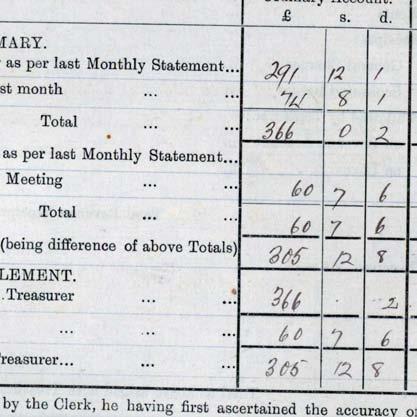 Ordinary Account.
£ s. d.
MARY.
as per last Monthly Statement... 291 12 1
st month ... ... 74 8 1
Total ... ... 366 0 2
as per last Monthly Statement...
Meeting ... ... 60 7 6
Total ... ... 60 7 6
(being difference of above Totals) 305 12 8
LEMENT.
Treasurer ... ... 366 . 2
... ... 60 7 6
reasurer... ... ... 305 12 8
by the Clerk, he having first ascertained the accuracy o